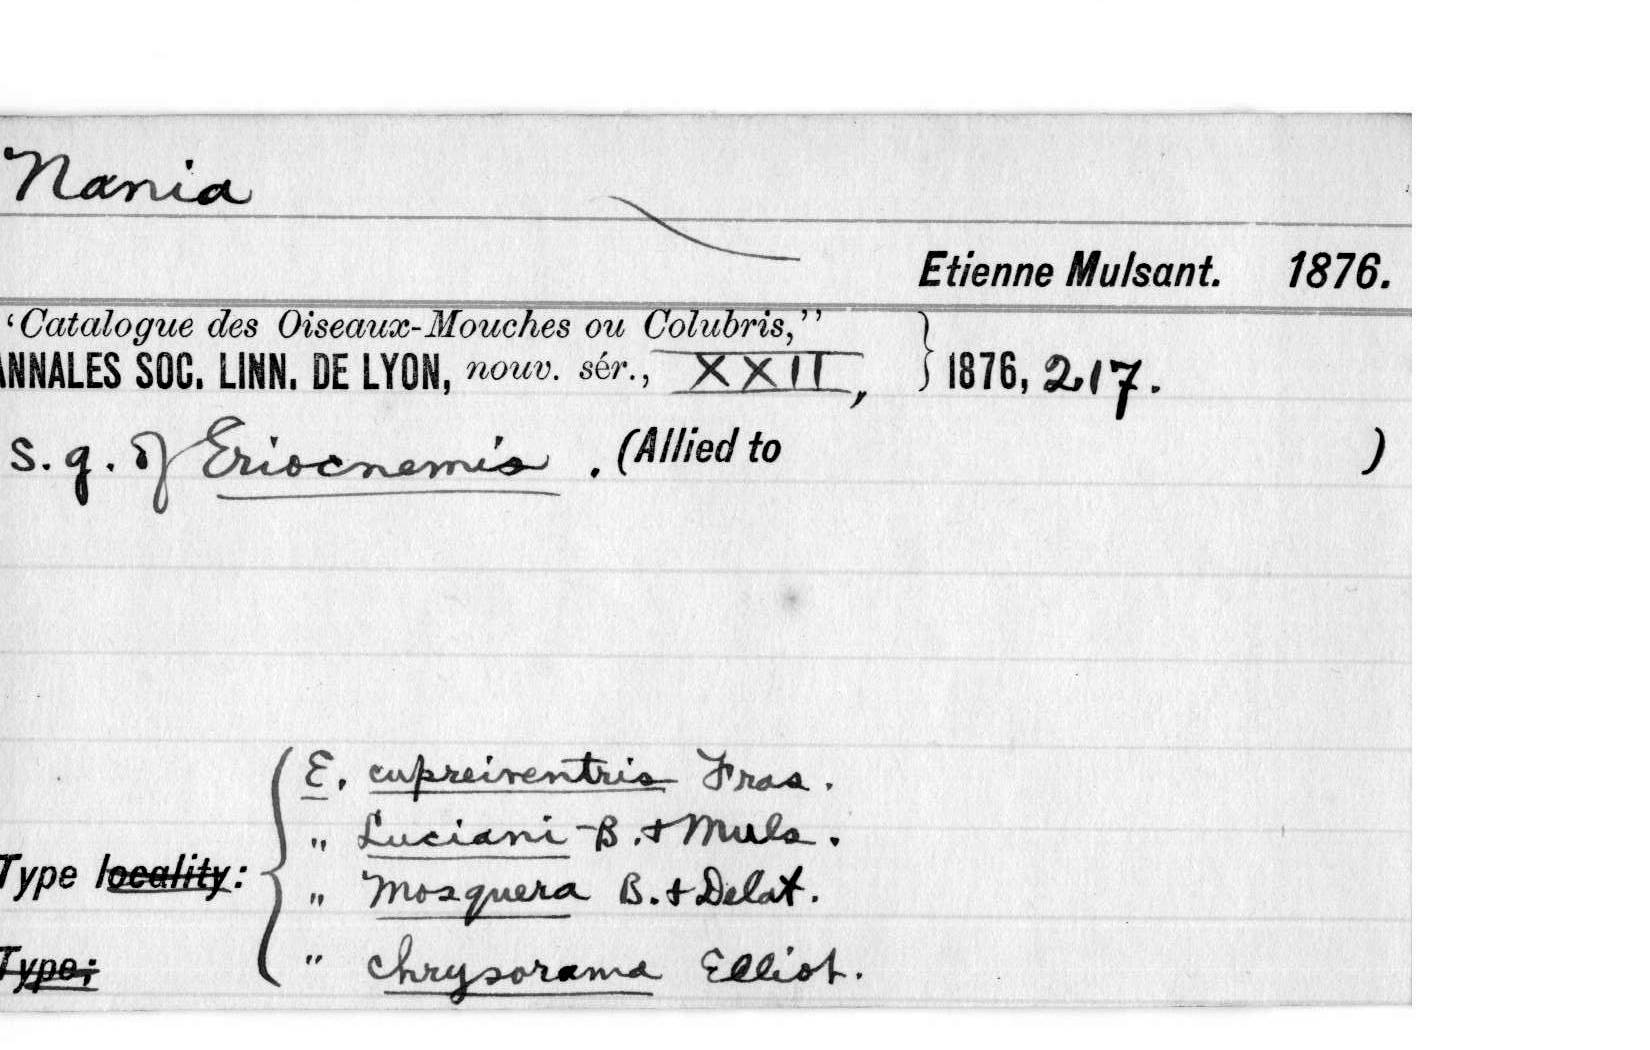 Nania
Etienne Mulsant. 1876.
‘Catalogue des Oiseaux-Mouches ou Colubris,’’
ANNALES SOC. LINN. DE LYON, nouv. sér., XXII, } 1876, 217.
s. g. of Eriocnemis . (Allied to )
E. cupreiventris Fras.
" Luciani B. & Muls.
Type locality: " Mosquera B. & Delat.
Type: " chrysorama Elliot.